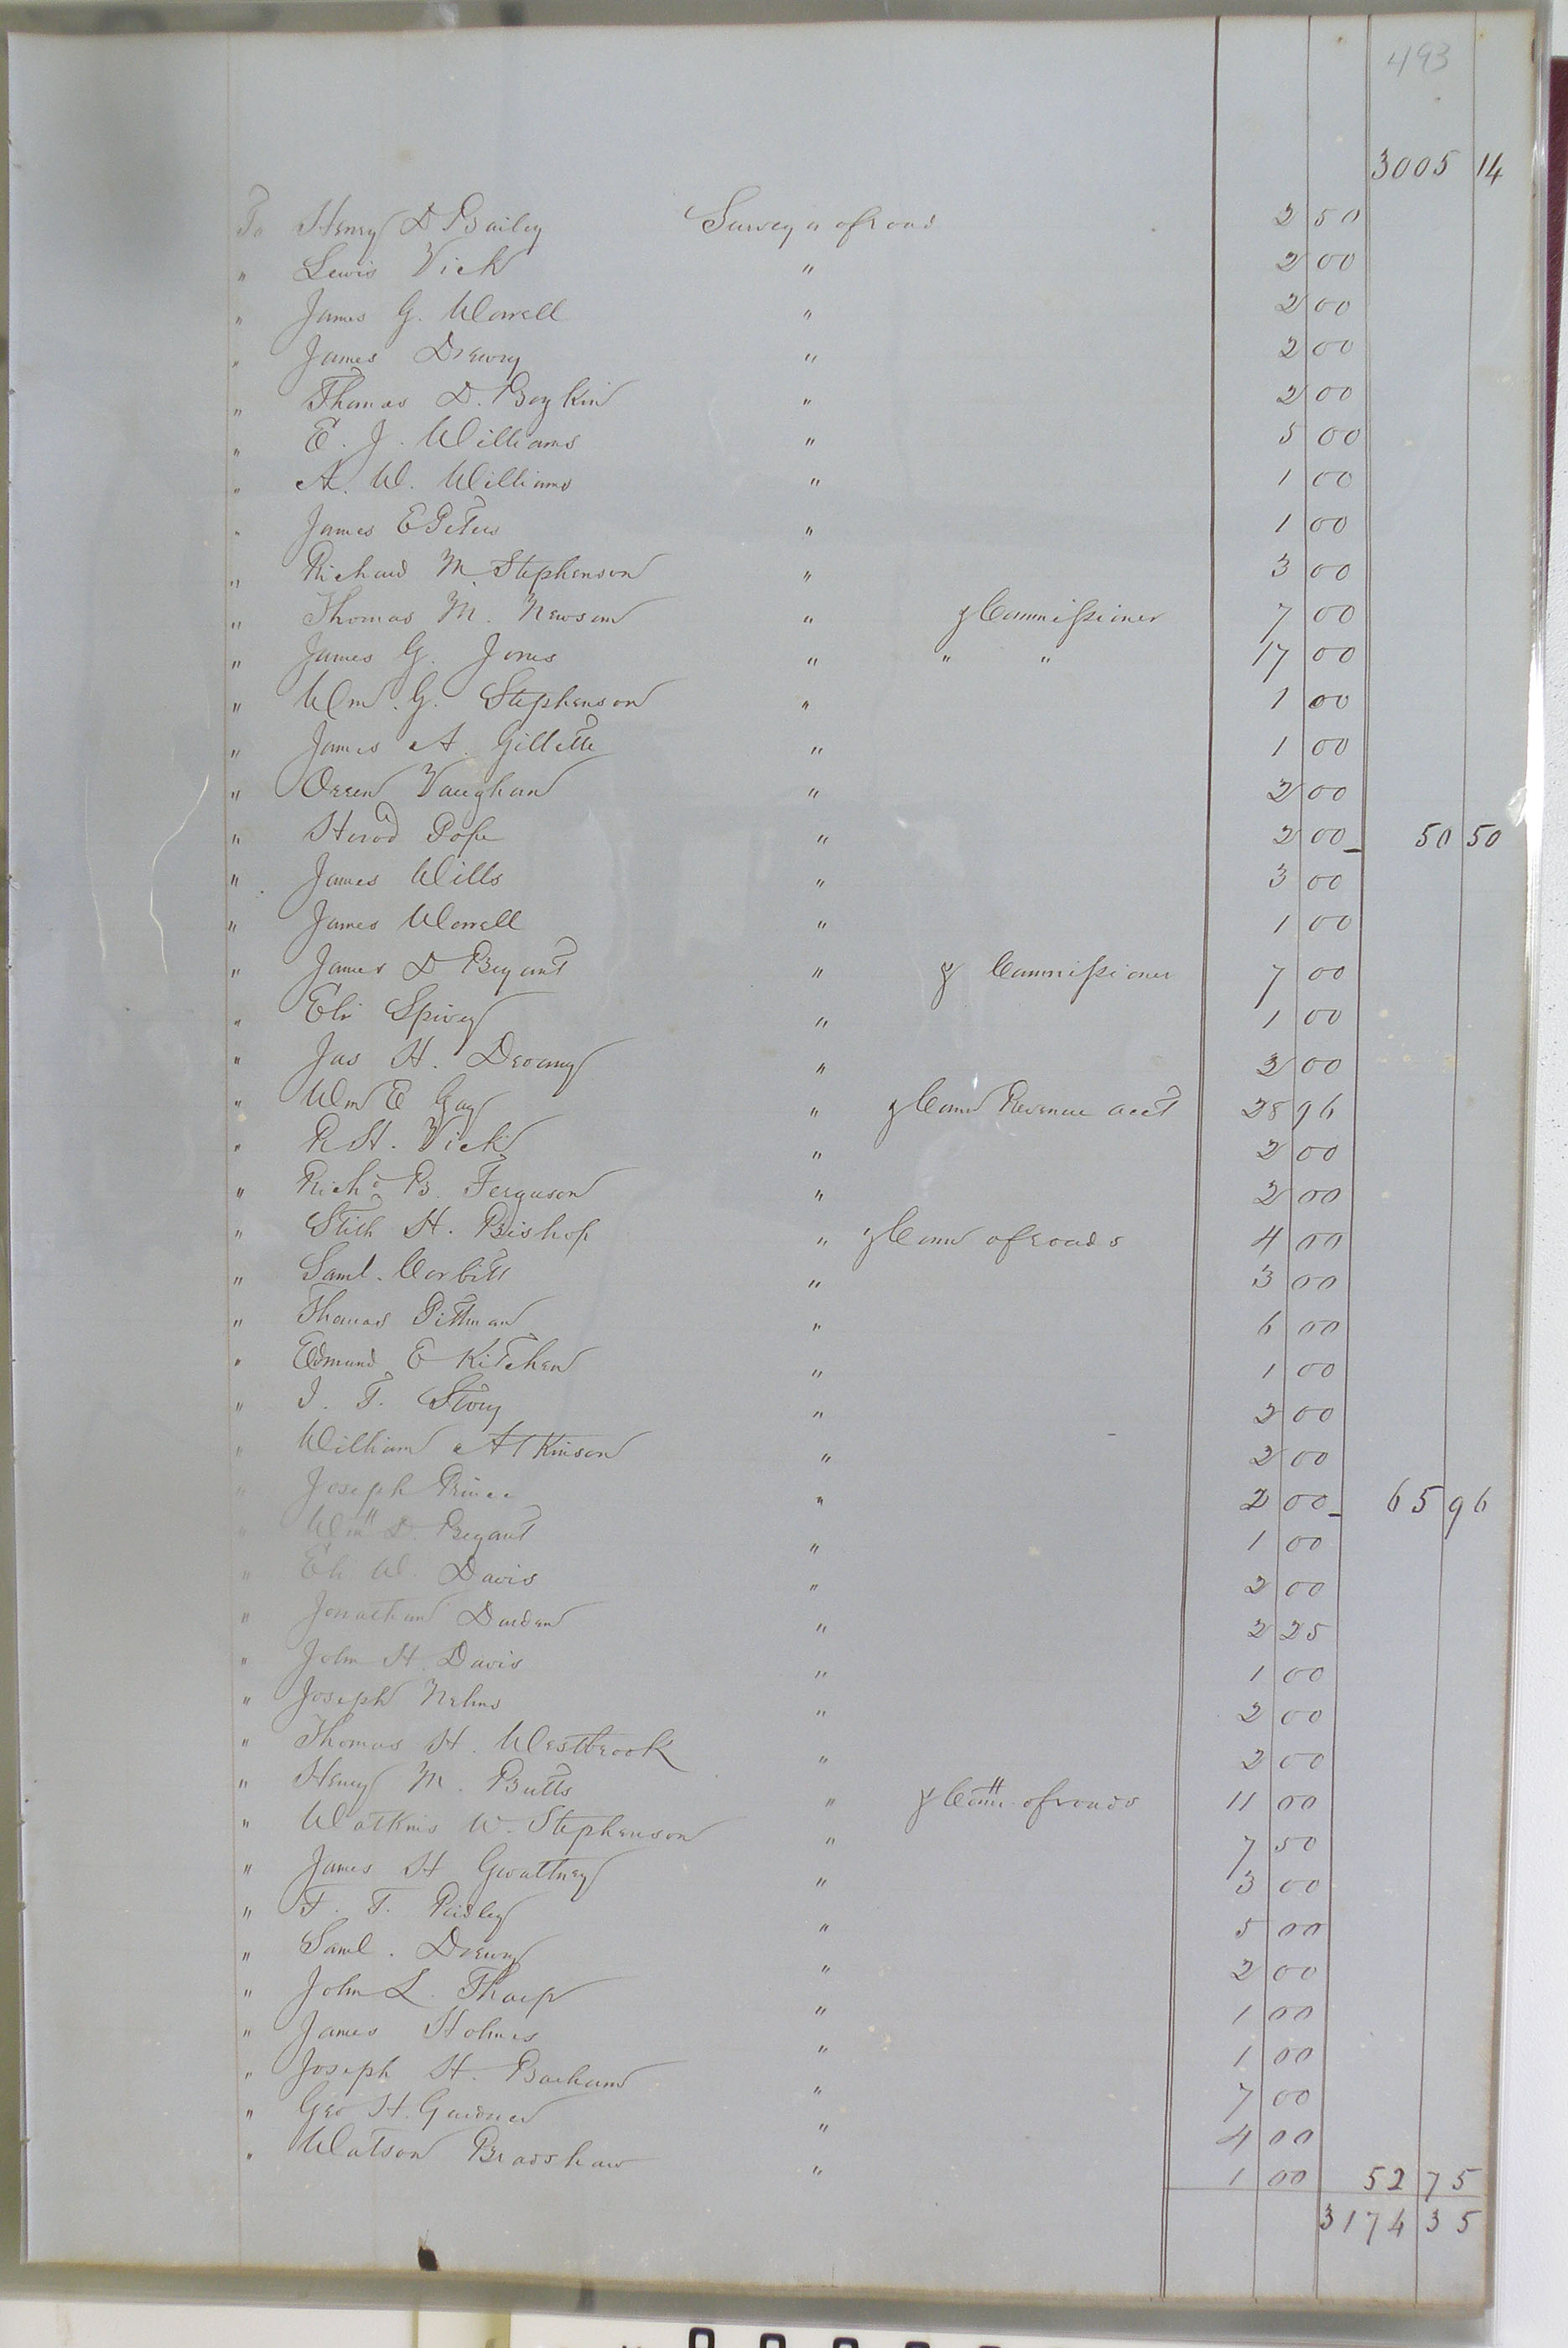 493
3005 14
To Henry D Bailey Surveyor of road 2 50
" Lewis Vick " 2 00
" James G. Worrell " 2 00
" James Drewry " 2 00
" Thomas D. Boykin " 2 00
" E. J. Williams " 5 00
" A. W. Williams " 1 00
" James E Peters " 1 00
" Richard M Stephenson " 3 00
" Thomas M. Newsom " & Commissioner 7 00
" James G. Jones " " " 17 00
" Wm. G. Stephenson " 1 00
" James A. Gillette " 1 00
" Orren Vaughan " 2 00
" Herod Pope " 2 00 50 50
" James Wills " 3 00
" James Worrell " 1 00
" James D Bryant " & Commissioner 7 00
" Eli Spivey " 1 00
" Jas H. Drewry " 2 00
" Wm E Gay " & Comr Revenue acct 28 96
" R H. Vick " 2 00
" Richd B. Ferguson " 2 00
" Stith H. Bishop " & Comr of roads 4 00
" Saml. Corbitt " 3 00
" Thomas Pittman " 6 00
" Edmund E Kitchen " 1 00
" J. T. Story " 2 00
" William Atkinson " 2 00
" Joseph Prince " 2 00 65 96
" Wm D. Bryant " 1 00
" Eli W. Davis " 2 00
" Jonathan Darden " 2 25
" John H. Davis " 1 00
" Joseph Nelms " 2 00
" Thomas H. Westbrook " 2 00
" Henry M. Butts " & Comr. of roads 11 00
" Watkins W. Stephenson " 7 50
" James H Gwaltney " 3 00
" F. T. Ridley " 5 00
" Saml. Drewry " 2 00
" John L. Tharp " 1 00
" James Holmes " 1 00
" Joseph H. Barham " 7 00
" Geo H. Gardner " 4 00
" Watson Bradshaw " 1 00 52 75
3174 35